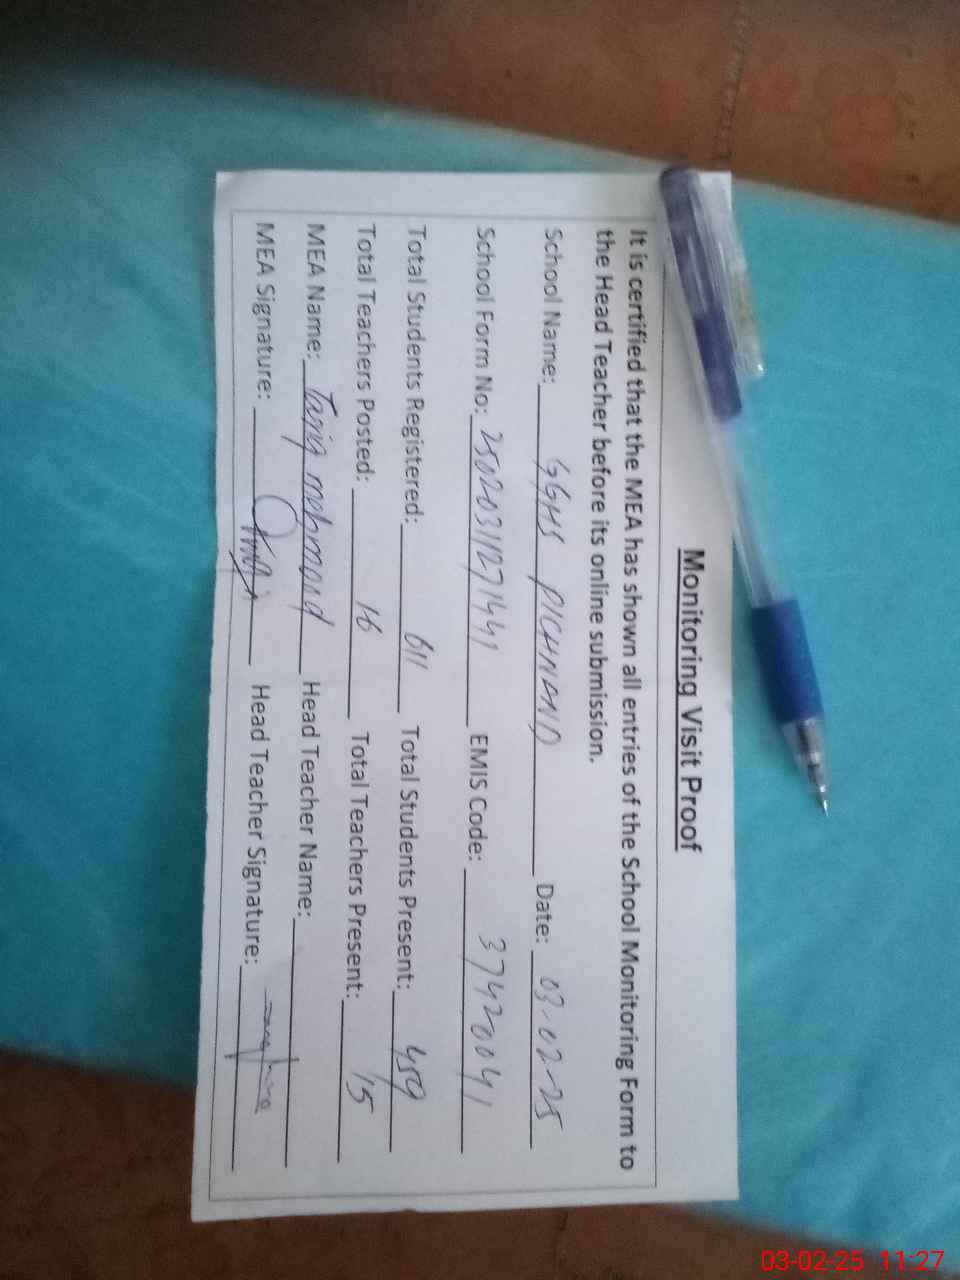 Monitoring Visit Proof
It is certified that the MEA has shown all entries of the School Monitoring Form to
the Head Teacher before its online submission.
School Name: GGHS PICHNAND Date: 03-02-25
School Form No: 25020311271441 EMIS Code: 37420041
Total Students Registered: 611 Total Students Present: 459
Total Teachers Posted: 16 Total Teachers Present: 15
MEA Name: Tariq mehmood Head Teacher Name:
MEA Signature: Head Teacher Signature:
03-02-25 11:27